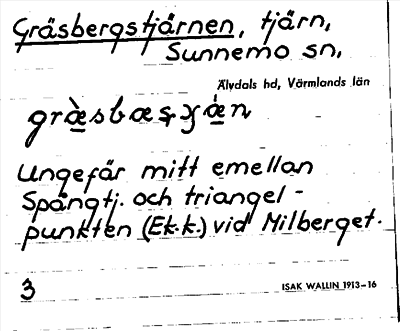 Gräsbergstjärnen, tjärn,
Sunnemo sn,
Älvdals hd, Värmlands län
Ungefär mitt emellan
Spångtj. och triangel-
punkten (Ek.k.) vid Milberget.
3
ISAK WALLIN 1913-16